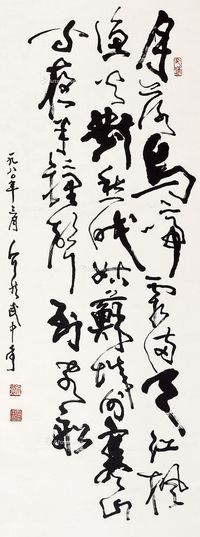 月落烏啼霜滿天江楓
漁火對愁眠姑蘇城外寒山
寺夜半鐘聲到客船
一九八〇年三月武中奇